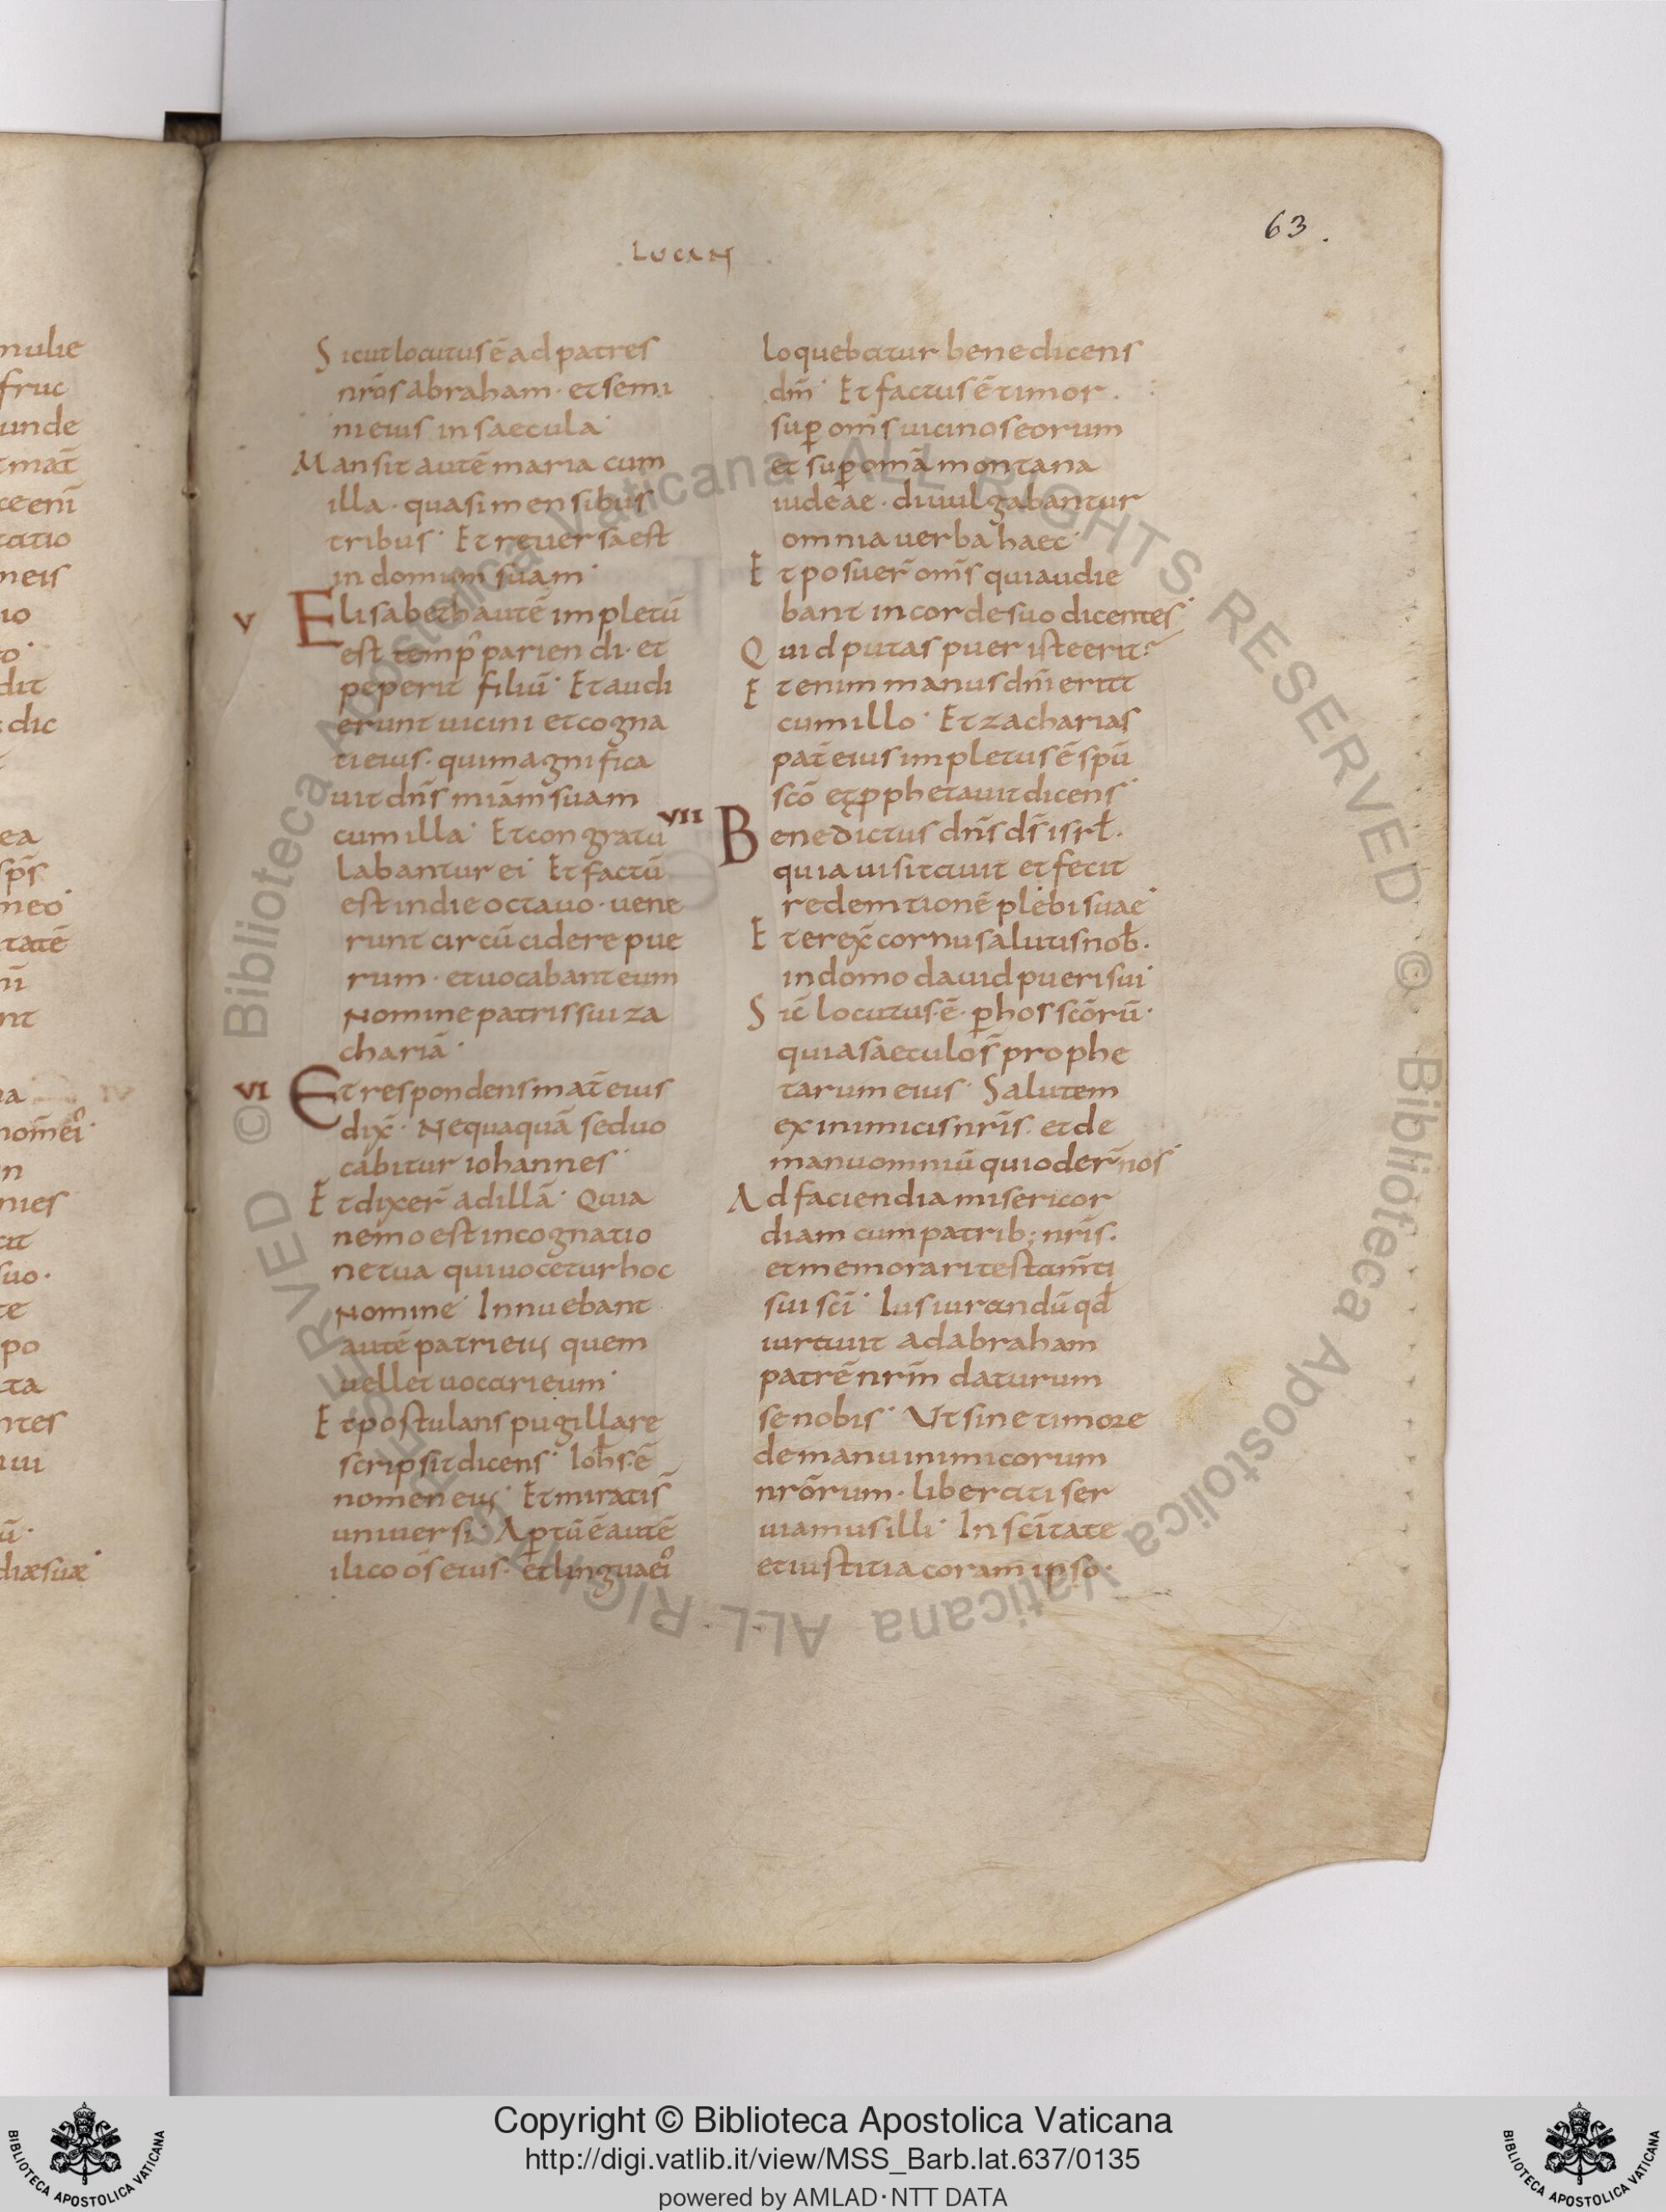 63.
LUCAN
Sicut locutus ē ad patres
nr̄os abraham · et semi
ni eius in saecula·
Mansit autē maria cum
illa · quasi mensibus
tribus· Et reuersa est
in domum suam·
V
Elisabeth autē impletū
est temp᾽ pariendi· et
peperit filiū· Et audi
erunt uicini et cogna
ti eius· qui magnifica
uit dn̄s miām suam
cum illa· Et congratu
labantur ei· Et factū
est in die octauo · uene
runt circūcidere pue
rum · et uocabant eum
nomine patris sui za
chariā·
VI
Et respondens mat̄ eius
dix̄· Nequaquā sed uo
cabitur iohannes·
Et dixer̄ ad illā· Quia
nemo est in cognatio
ne tua qui uocetur hoc
nomine· Innuebant
autē patri eius quem
uellet uocari eum·
Et postulans pugillare
scripsit dicens· Ioh̄s· ē
nomen eius· Et mirati s̄
uniuersi· Ap̱tū ē autē
ilico ōs eius· et lingua ei᾽
loquebatur benedicens
dm̄· Et factus ē timor·
sup̱ om̄s uicinos eorum
et sup̱ omā montana
iudeae · diuulgabantur
omnia uerba haec·
Et posuer̄ om̄s qui audie
bant in corde suo dicentes·
Quid putas puer iste erit?
Etenim manus dn̄i erat
cum illo· Et zacharias
pat̄ eius impletus ē spū
scō et ꝓphetauit dicens·
VII
Benedictus dn̄s ds̄ isrł·
quia uisitauit et fecit
redemtionē plebi suae·
Et erex̄ cornu salutis nob̄·
in domo dauid pueri sui·
Sic̄ locutus· ē· ꝑ hos scōrū·
qui a saeculo s̄ prophe
tarum eius· Salutem
ex inimicis nr̄is· et de
manu omniū qui oder̄ nos·
Ad faciendia misericor
diam cum patrib; nr̄is·
et memorari testam̄ti
sui scī· Iusiurandū qd̄
iurauit ad abraham
patrē nr̄m daturum
se nobis· Ut sine timore
de manu inimicorum
nr̄orum · liberati ser
uiamus illi· In scītate
et iustitia coram ipso·
nulie
fruc
unde
Copyright © Biblioteca Apostolica Vaticana
http://digi.vatlib.it/view/MSS_Barb.lat.637/0135
powered by AMLAD·NTT DATA
BIBLIOTECA APOSTOLICA VATICANA
BIBLIOTECA APOSTOLICA VATICANA
© Biblioteca Apostolica Vaticana ALL RIGHTS RESERVED
© Biblioteca Apostolica Vaticana ALL RIGHTS RESERVED